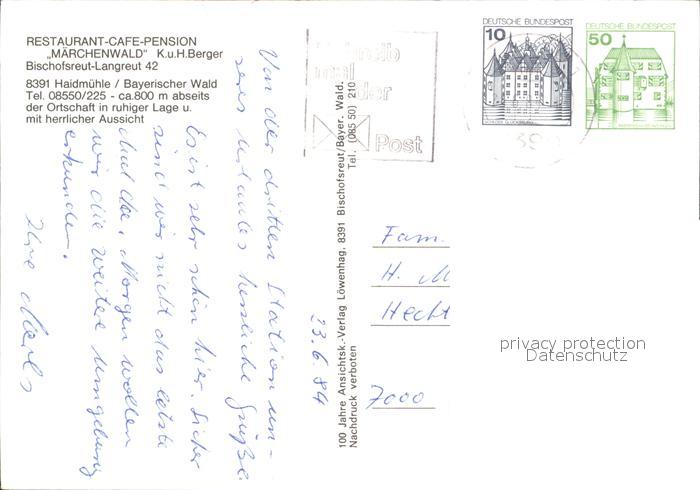 RESTAURANT-CAFE-PENSION
„MÄRCHENWALD" K.u.H.Berger
Bischofsreut-Langreut 42
8391 Haidmühle / Bayerischer Wald
Tel. 08550/225 - ca.800 m abseits
der Ortschaft in ruhiger Lage u.
mit herrlicher Aussicht
Von der dritten Station un-
seres Urlaubes herzliche Grüße.
Es ist sehr schön hier. Sicher
sind wir nicht das letzte
Mal da. Morgen wollen
wir die weitere Umgebung
erkunden.
Ihre
23.6.84
100 Jahre Ansichtsk.-Verlag Löwenhag, 8391 Bischofsreut/Bayer. Wald.
Tel. (085 50) 210
Nachdruck verboten
Post
DEUTSCHE BUNDESPOST
10
DEUTSCHE BUNDESPOST
50
Fam.
H. M
Hecht
7000
privacy protection
Datenschutz